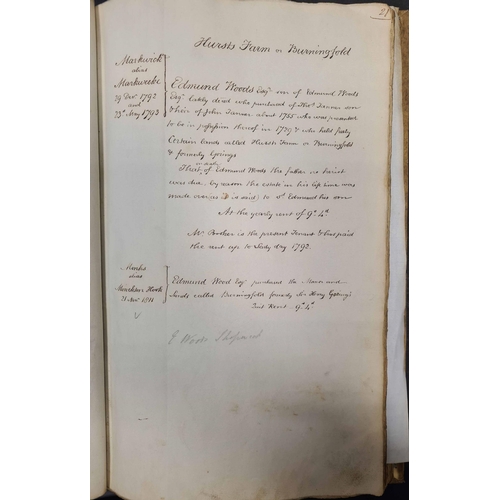 21
Hursts Farm or Burningfold
Markwick
alias
Markwicke
29 Decr 1792
and
23d May 1793
Edmund Woods Esqr son of Edmund Woods
Esqr lately dead who purchased of Thos Tanner son
& heir of John Tanner about 1755 who was presented
to be in possession thereof in 1729 & who held freely
Certain Lands called Hursts Farm or Burningfold
& formerly Gorings
of Edmund Woods the father no heriot
was due by reason the estate in his life time was
made over as it is said to sd Edmund his son
At the yearly rent of 9s 4d
Mr Botler is the present Tenant & has paid
the rent up to Lady day 1792
Monks
alias
Monkton Hook
21 Novr 1811
Edmund Wood Esqr purchased the Manor and
Lands called Burningfold formerly Sir Henry Goring's
Quit Rent 9s 4d
E Woods Shopwick